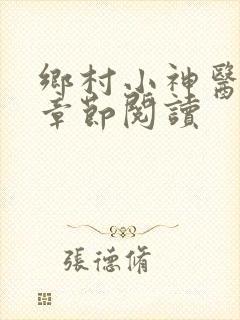 鄉村小神醫
章節閱讀
張德脩